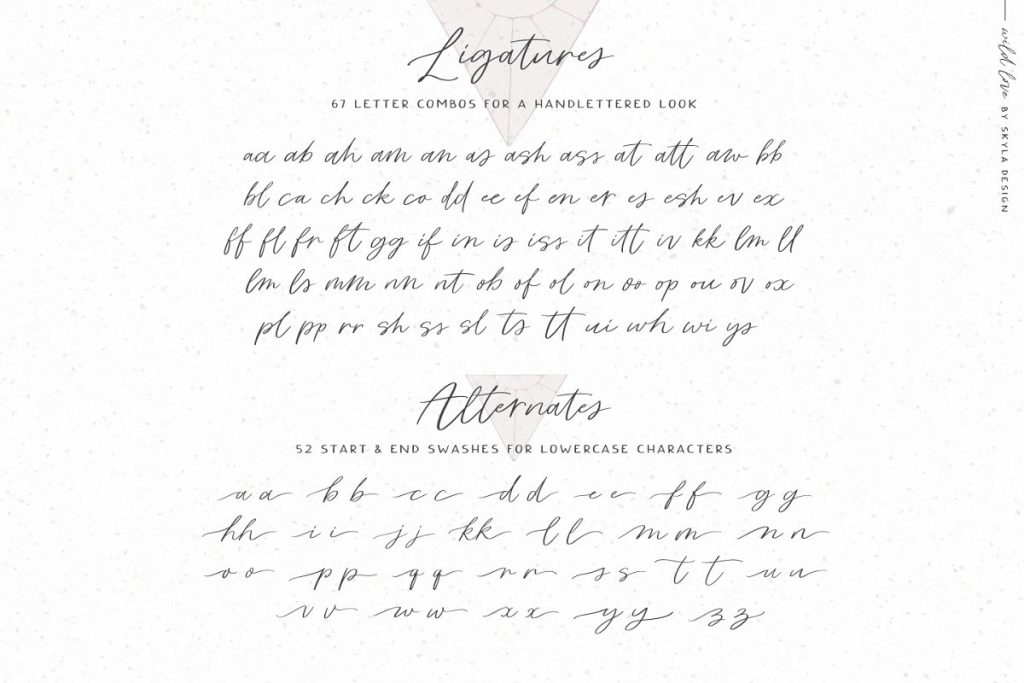 Ligatures
67 LETTER COMBOS FOR A HANDLETTERED LOOK
aa ab ah am an as ash ass at att aw bb
bl ca ch ck co dd ee ef en er es esh ev ex
ff fl fr ft gg if in is iss it itt iv kk lm ll
lm ls mm nn nt ob of ol on oo op ou ov ox
pl pp rr sh ss sl ts tt ui wh wi ys
Alternates
52 START & END SWASHES FOR LOWERCASE CHARACTERS
a a b b c c d d e e f f g g
h h i i j j k k l l m m n n
o o p p q q r r s s t t u u
v v w w x x y y z z
wild love BY SKYLA DESIGN